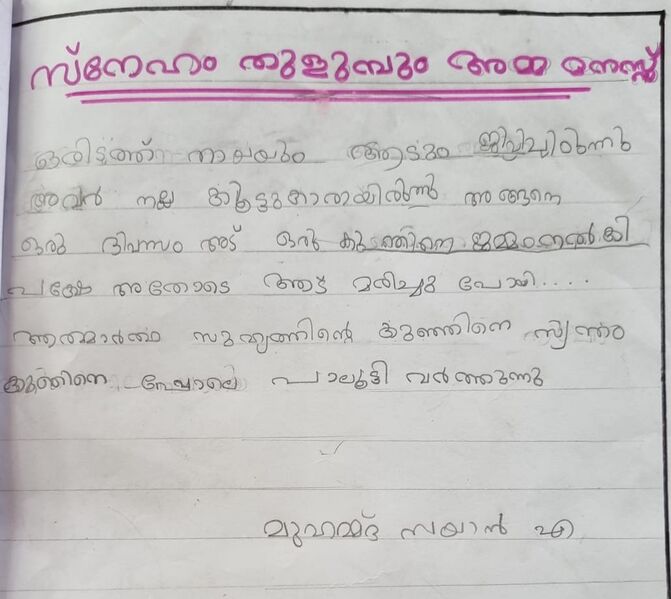 സ്നേഹം തുളുമ്പും അമ്മ മനസ്സ്
ഒരിടത്ത് നായയും ആടും ജീവിച്ചിരുന്നു
അവർ നല്ല കൂട്ടുകാരായിരുന്നു അങ്ങനെ
ഒരു ദിവസം ആട് ഒരു കുഞ്ഞിനെ ജന്മം നൽകി
പക്ഷേ അതോടെ ആട് മരിച്ചു പോയി....
ആത്മാർത്ഥ സുഹൃത്തിന്റെ കുഞ്ഞിനെ സ്വന്തം
കുഞ്ഞിനെ പോലെ പാലൂട്ടി വളർത്തുന്നു
മുഹമ്മദ് സയാൻ എ